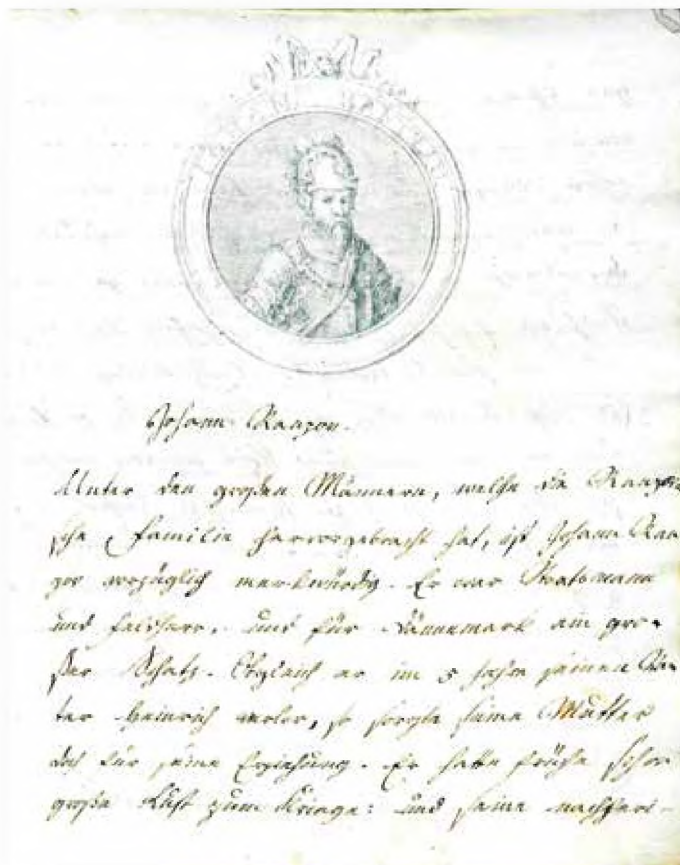 Johann Ranzou.
Unter den großen Männern, welche die Ranzoui
sche Familie hervorgebracht hat, ist Johann Ran
zou vorzüglich merkwürdig. Er war Staatsmann
und Feldherr, und für Dännemark ein gro-
ßer Schatz. Obgleich er im 5 Jahre seinen Va-
ter Heinrich verlor, so sorgte seine Mutter
doch für seine Erziehung. Er hatte frühe schon
große Lust zum Kriege: und seine